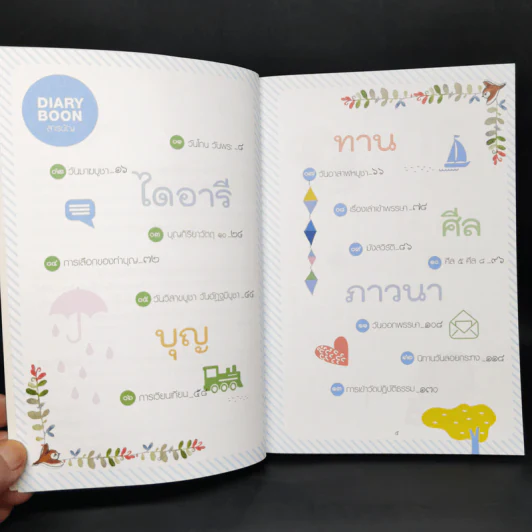 DIARY
BOON
สารบัญ
๐๑ วันโกน วันพระ...๘
๐๒ วันมาฆบูชา...๑๖
ไดอารี
๐๓ บุญกิริยาวัตถุ ๑๐...๒๔
๐๔ การเลือกของทำบุญ...๓๒
๐๕ วันวิสาขบูชา วันอัฏฐมีบูชา...๔๔
บุญ
๐๖ การเวียนเทียน...๕๔
ทาน
๐๗ วันอาสาฬหบูชา...๖๖
๐๘ เรื่องเล่าเข้าพรรษา...๗๘
ศีล
๐๙ มังสวิรัติ...๘๖
๑๐ ศีล ๕ ศีล ๘...๙๖
ภาวนา
๑๑ วันออกพรรษา...๑๐๘
๑๒ นิทานวันลอยกระทง...๑๑๘
๑๓ การเข้าวัดปฏิบัติธรรม...๑๓๐